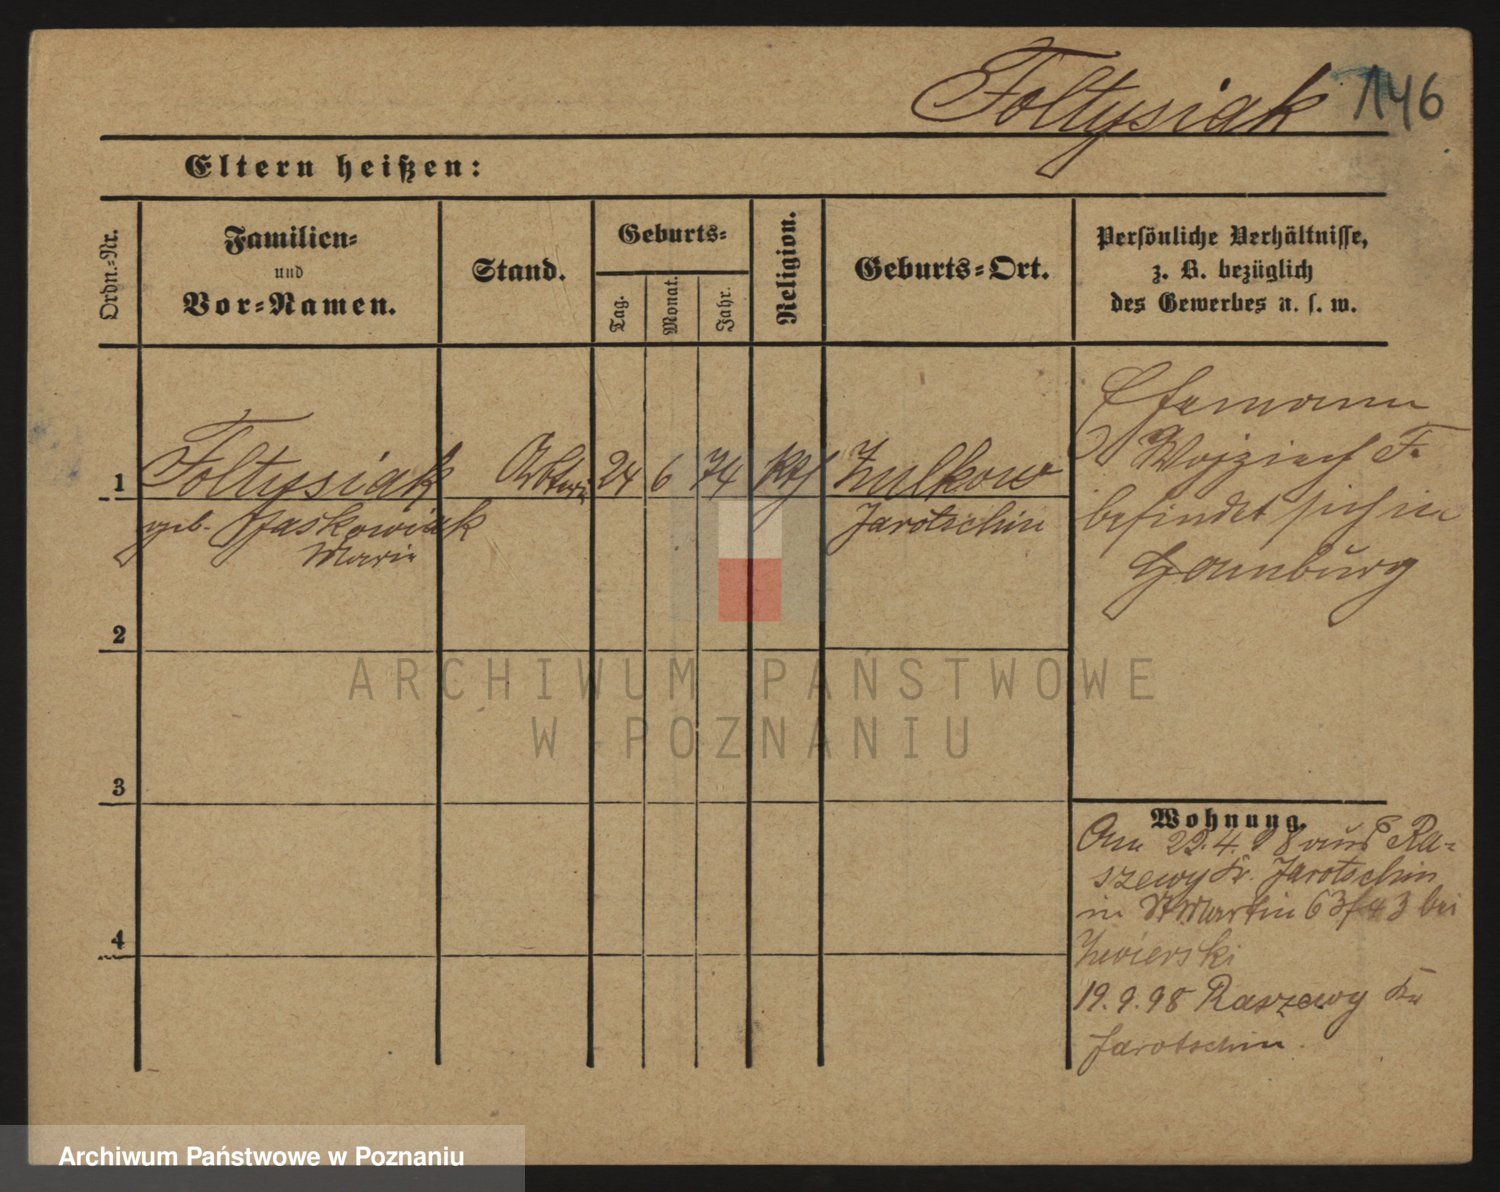 Foltysiak 146
Eltern heißen:
Ordn.-Nr.
Familien-
und
Vor-Namen.
Stand.
Geburts-
Tag.
Monat.
Jahr.
Religion.
Geburts-Ort.
Persönliche Verhältnisse,
z. B. bezüglich
des Gewerbes u. s. w.
1 Foltysiak 24 6 74 Kth Zulkow
geb. Marie
Jarotschin
Ehemann
Wojziech F.
befindet sich in
Hamburg
2
3
4
Wohnung.
Am 22.4.98 aus Ra-
szewy Kr. Jarotschin
in St Martin 63/43 bei
Zwierski
19.9.98 Raszewy Kr
Jarotschin.
ARCHIWUM PAŃSTWOWE
W POZNANIU
Archiwum Państwowe w Poznaniu